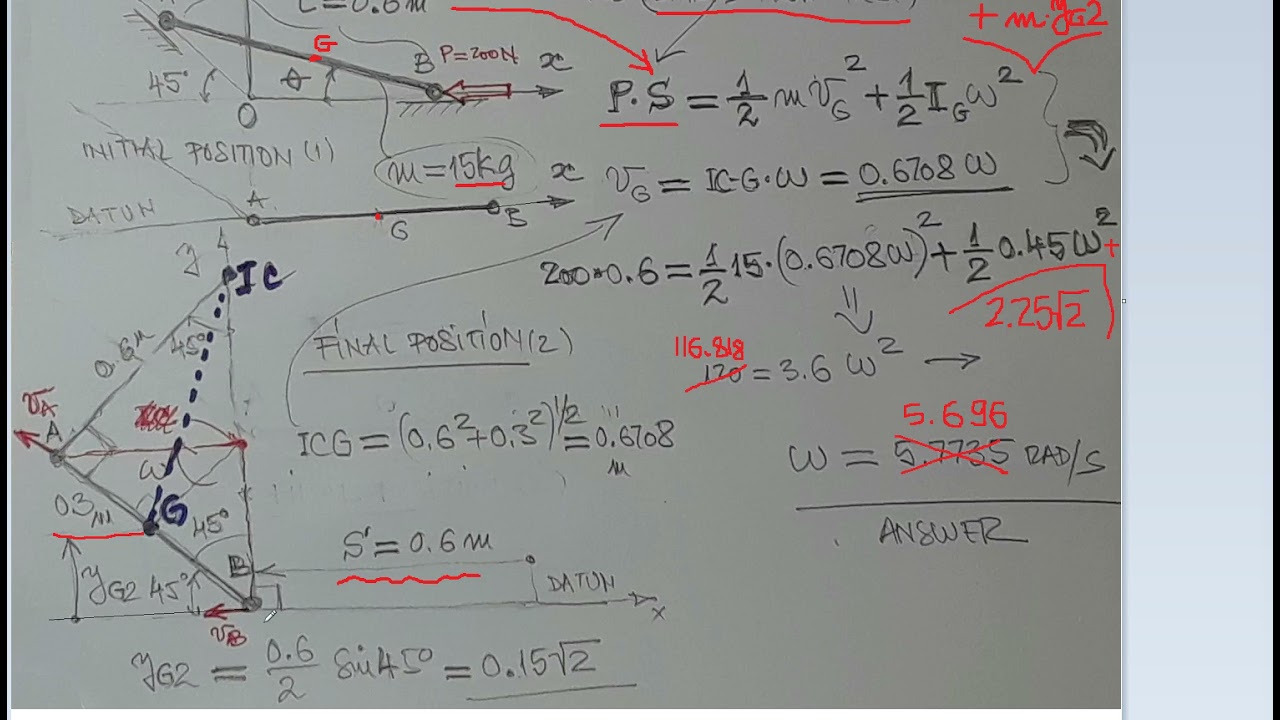 L=0.6m
+ m·yG2
G
B P=200N x
45° θ
O
P.S = 1/2 m vG² + 1/2 IG ω²
INITIAL POSITION (1)
m=15kg
x
vG = IC-G·ω = 0.6708 ω
DATUN
A
G
B
y
IC
200*0.6 = 1/2 15·(0.6708ω)² + 1/2 0.45ω² +
2.25√2
0.6m
45°
FINAL POSITION (2)
116.818
120 = 3.6 ω² →
vA
A
ω
ICG = (0.6²+0.3²)^1/2 = 0.6708 m
5.696
ω = 5.7735 RAD/S
0.3m
G
45°
ANSWER
S' = 0.6 m
yG2 45°
B
DATUN
x
vB
yG2 = 0.6/2 sin45° = 0.15√2